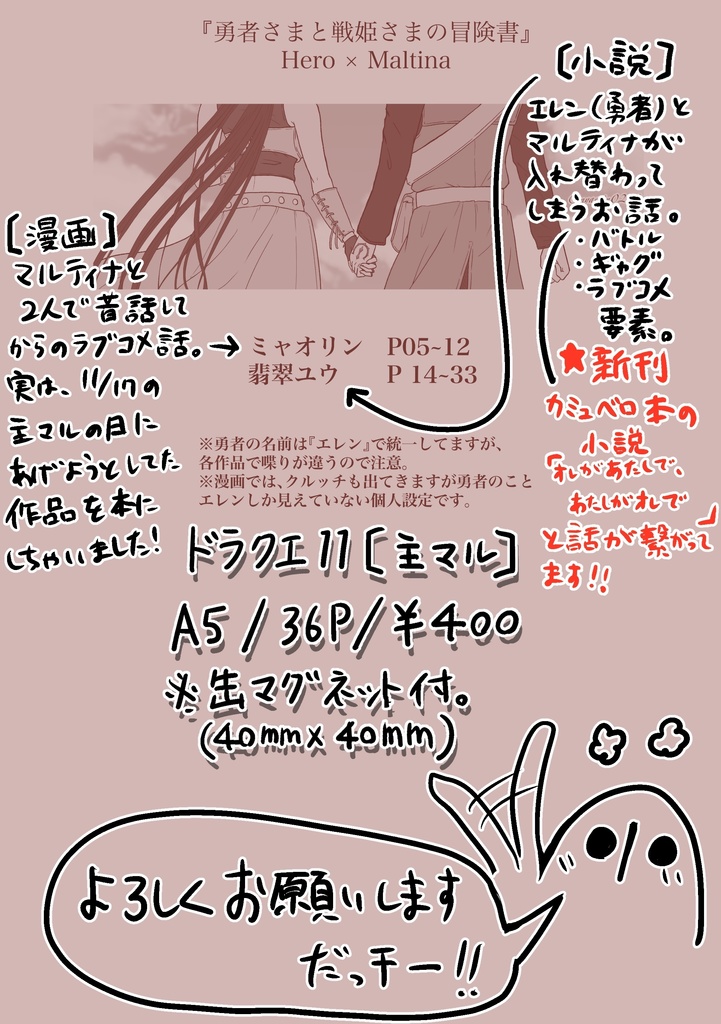 『勇者さまと戦姫さまの冒険書』
Hero × Maltina
[小説]
エレン(勇者)と
マルティナが
入れ替わって
しまうお話。
・バトル
・ギャグ
・ラブコメ
要素。
★新刊
カミュベロ本の
小説
「オレがあたしで、
わたしがオレで」
と話が繋がって
ます!!
[漫画]
マルティナと
2人で昔話して
からのラブコメ話。→
実は、11/17の
主マルの日に
あげようとしてた
作品を本に
しちゃいました!
ミャオリン P05~12
翡翠ユウ P 14~33
※勇者の名前は『エレン』で統一してますが、
各作品で喋りが違うので注意。
※漫画では、クルッチも出てきますが勇者のこと
エレンしか見えていない個人設定です。
ドラクエ11[主マル]
A5/36P/¥400
※缶マグネット付。
(40mm×40mm)
よろしくお願いします
だっチー!!